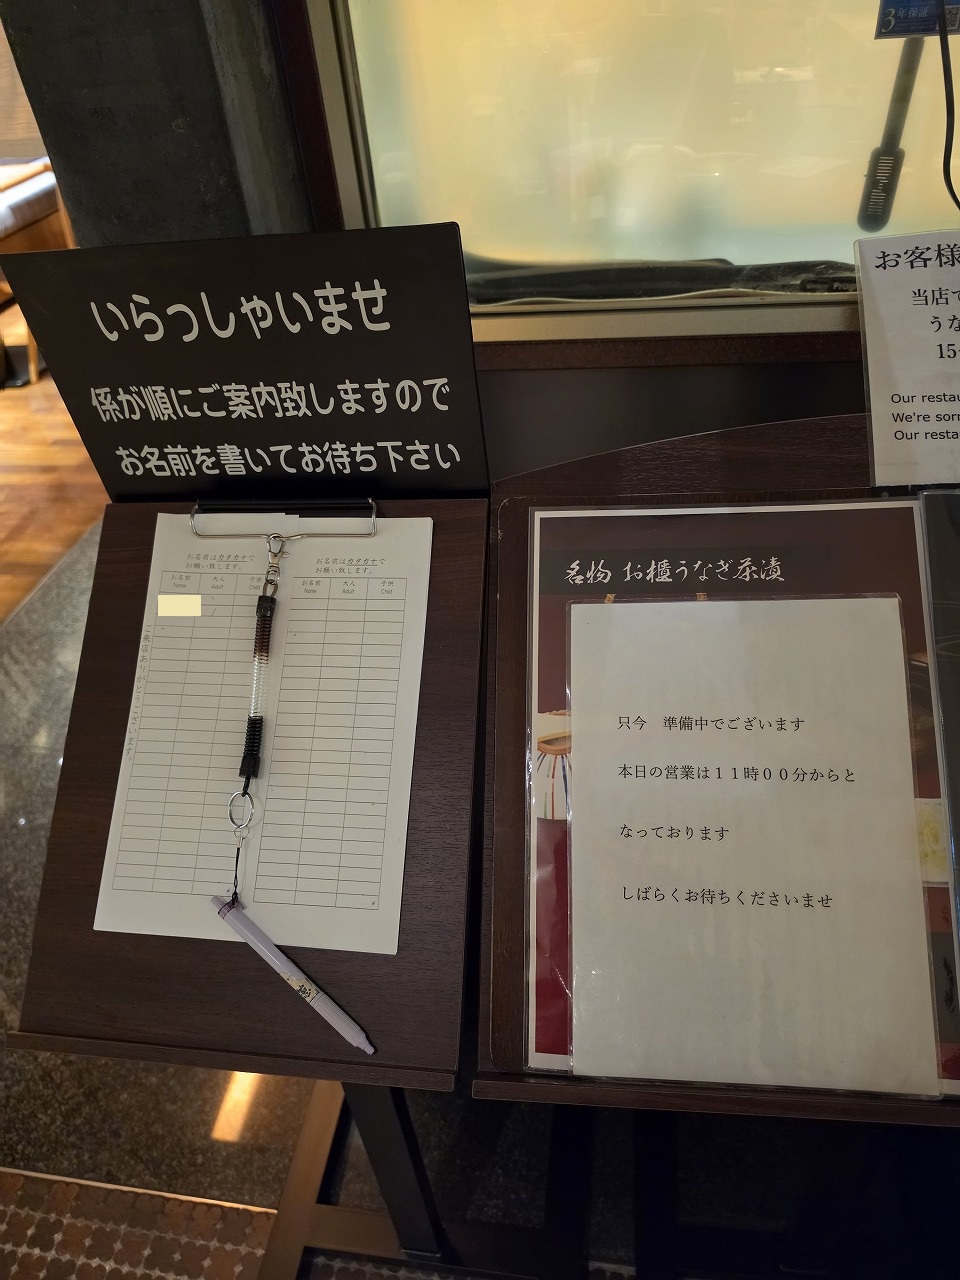 3年保証
いらっしゃいませ
係が順にご案内致しますので
お名前を書いてお待ち下さい
お客様
当店で
うな
15
Our restau
We're sorr
Our resta
お名前はカタカナで
お願い致します。
お名前 大人 子供
Name Adult Child
お名前はカタカナで
お願い致します。
お名前 大人 子供
Name Adult Child
ご来店ありがとうございます。
名物 お櫃うなぎ茶漬
只今 準備中でございます
本日の営業は11時00分からと
なっております
しばらくお待ちくださいませ